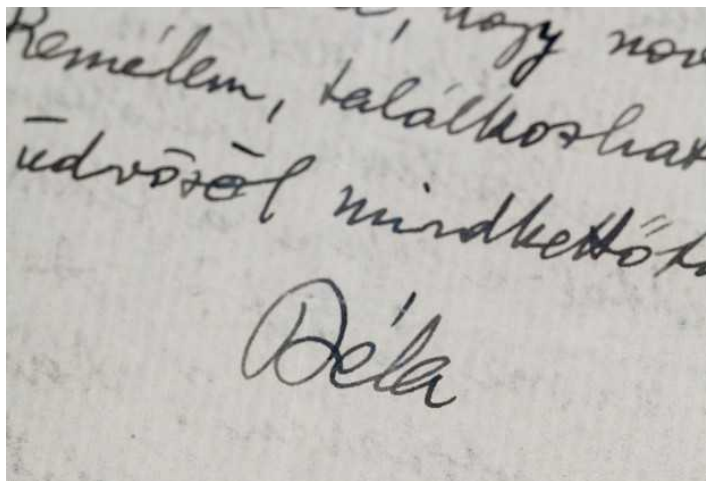 hogy nov
Remélem, találkozhat
üdvözöl mindkettőt
Béla